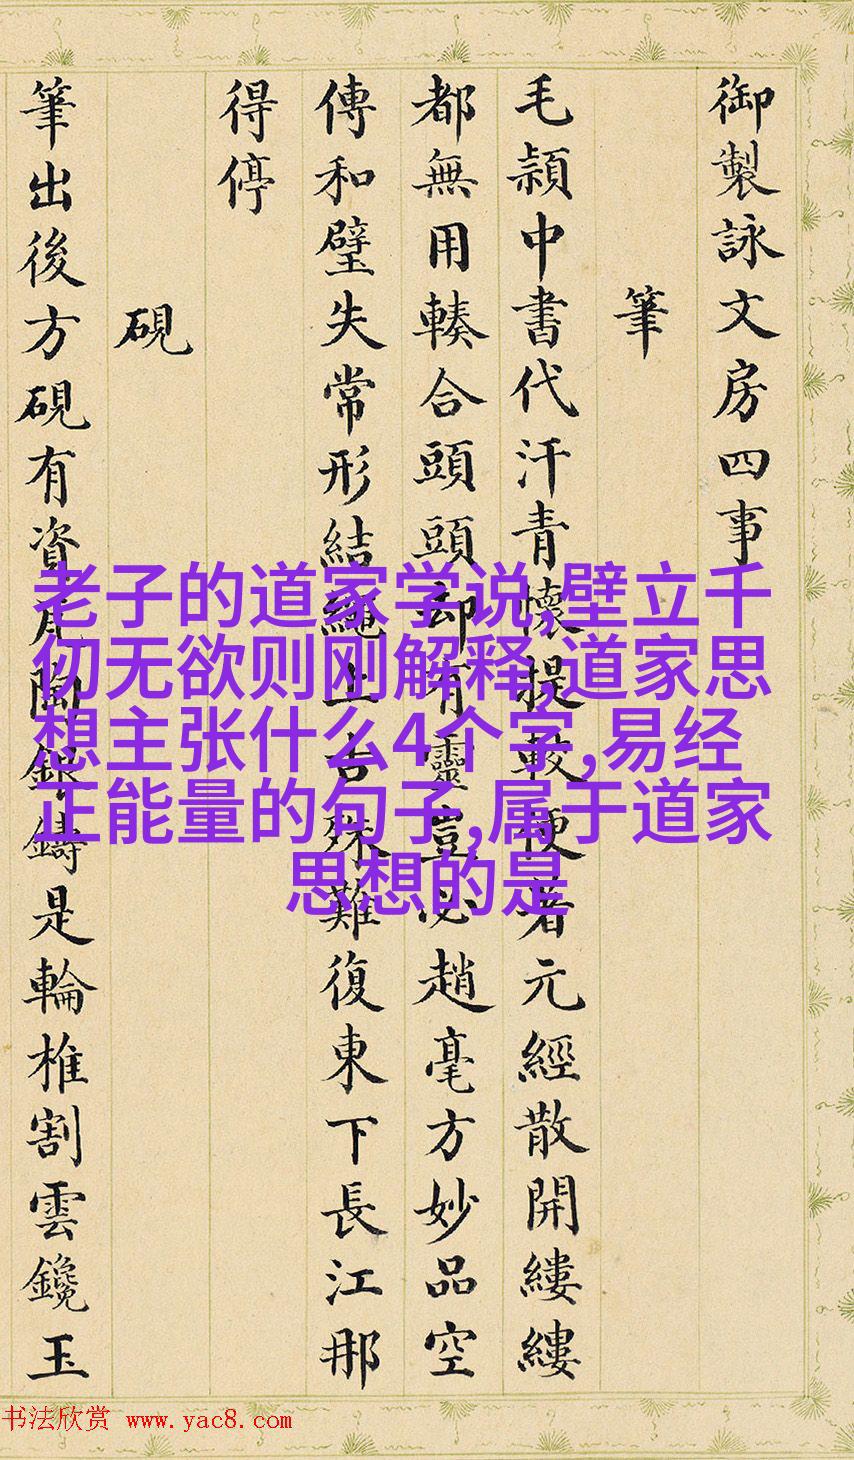 御製詠文房四事
筆
毛穎中書代汗青懷提較梗著元經散開縷縷
都無用輳合頭頭却有靈豈必趙毫方妙品空
傳和璧失常形結繩上古殊難復東下長江那
得停
硯
筆出後方硯有資范陶銀鑄是輪椎割雲鑱玉
老子的道家学说,壁立千
仞无欲则刚解释,道家思
想主张什么4个字,易经
正能量的句子,属于道家
思想的是
书法欣赏 www.yac8.com